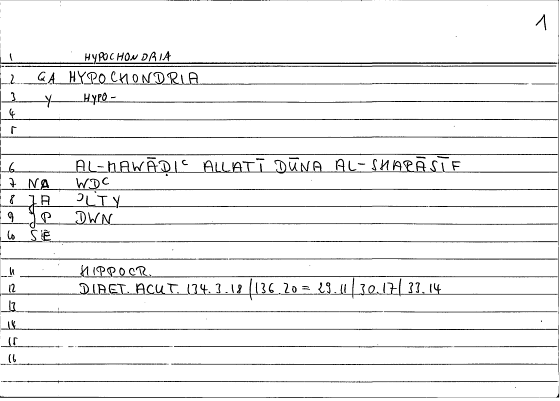 1
1 HYPOCHONDRIA
2 GA HYPOCHONDRIA
3 Y HYPO-
4
5
6 AL-MAWĀḌIʿ ALLATĪ DŪNA AL-SHARĀSĪF
7 NA WḌʿ
8 JA ʾLTY
9 JP DWN
10 SE
11 HIPPOCR.
12 DIAET. ACUT. 134.3.18 | 136.20 = 29.11 | 30.17 | 33.14
13
14
15
16